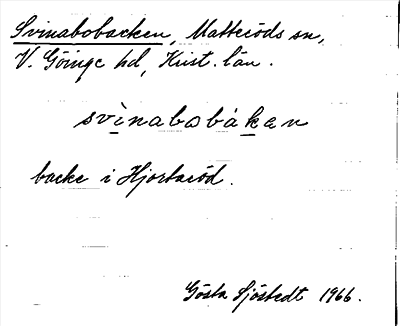 Svinabobacken, Matteröds sn,
V. Göinge hd, Krist. län.
svìnabobákan
backe i Hjortaröd.
Gösta Sjöstedt 1966.